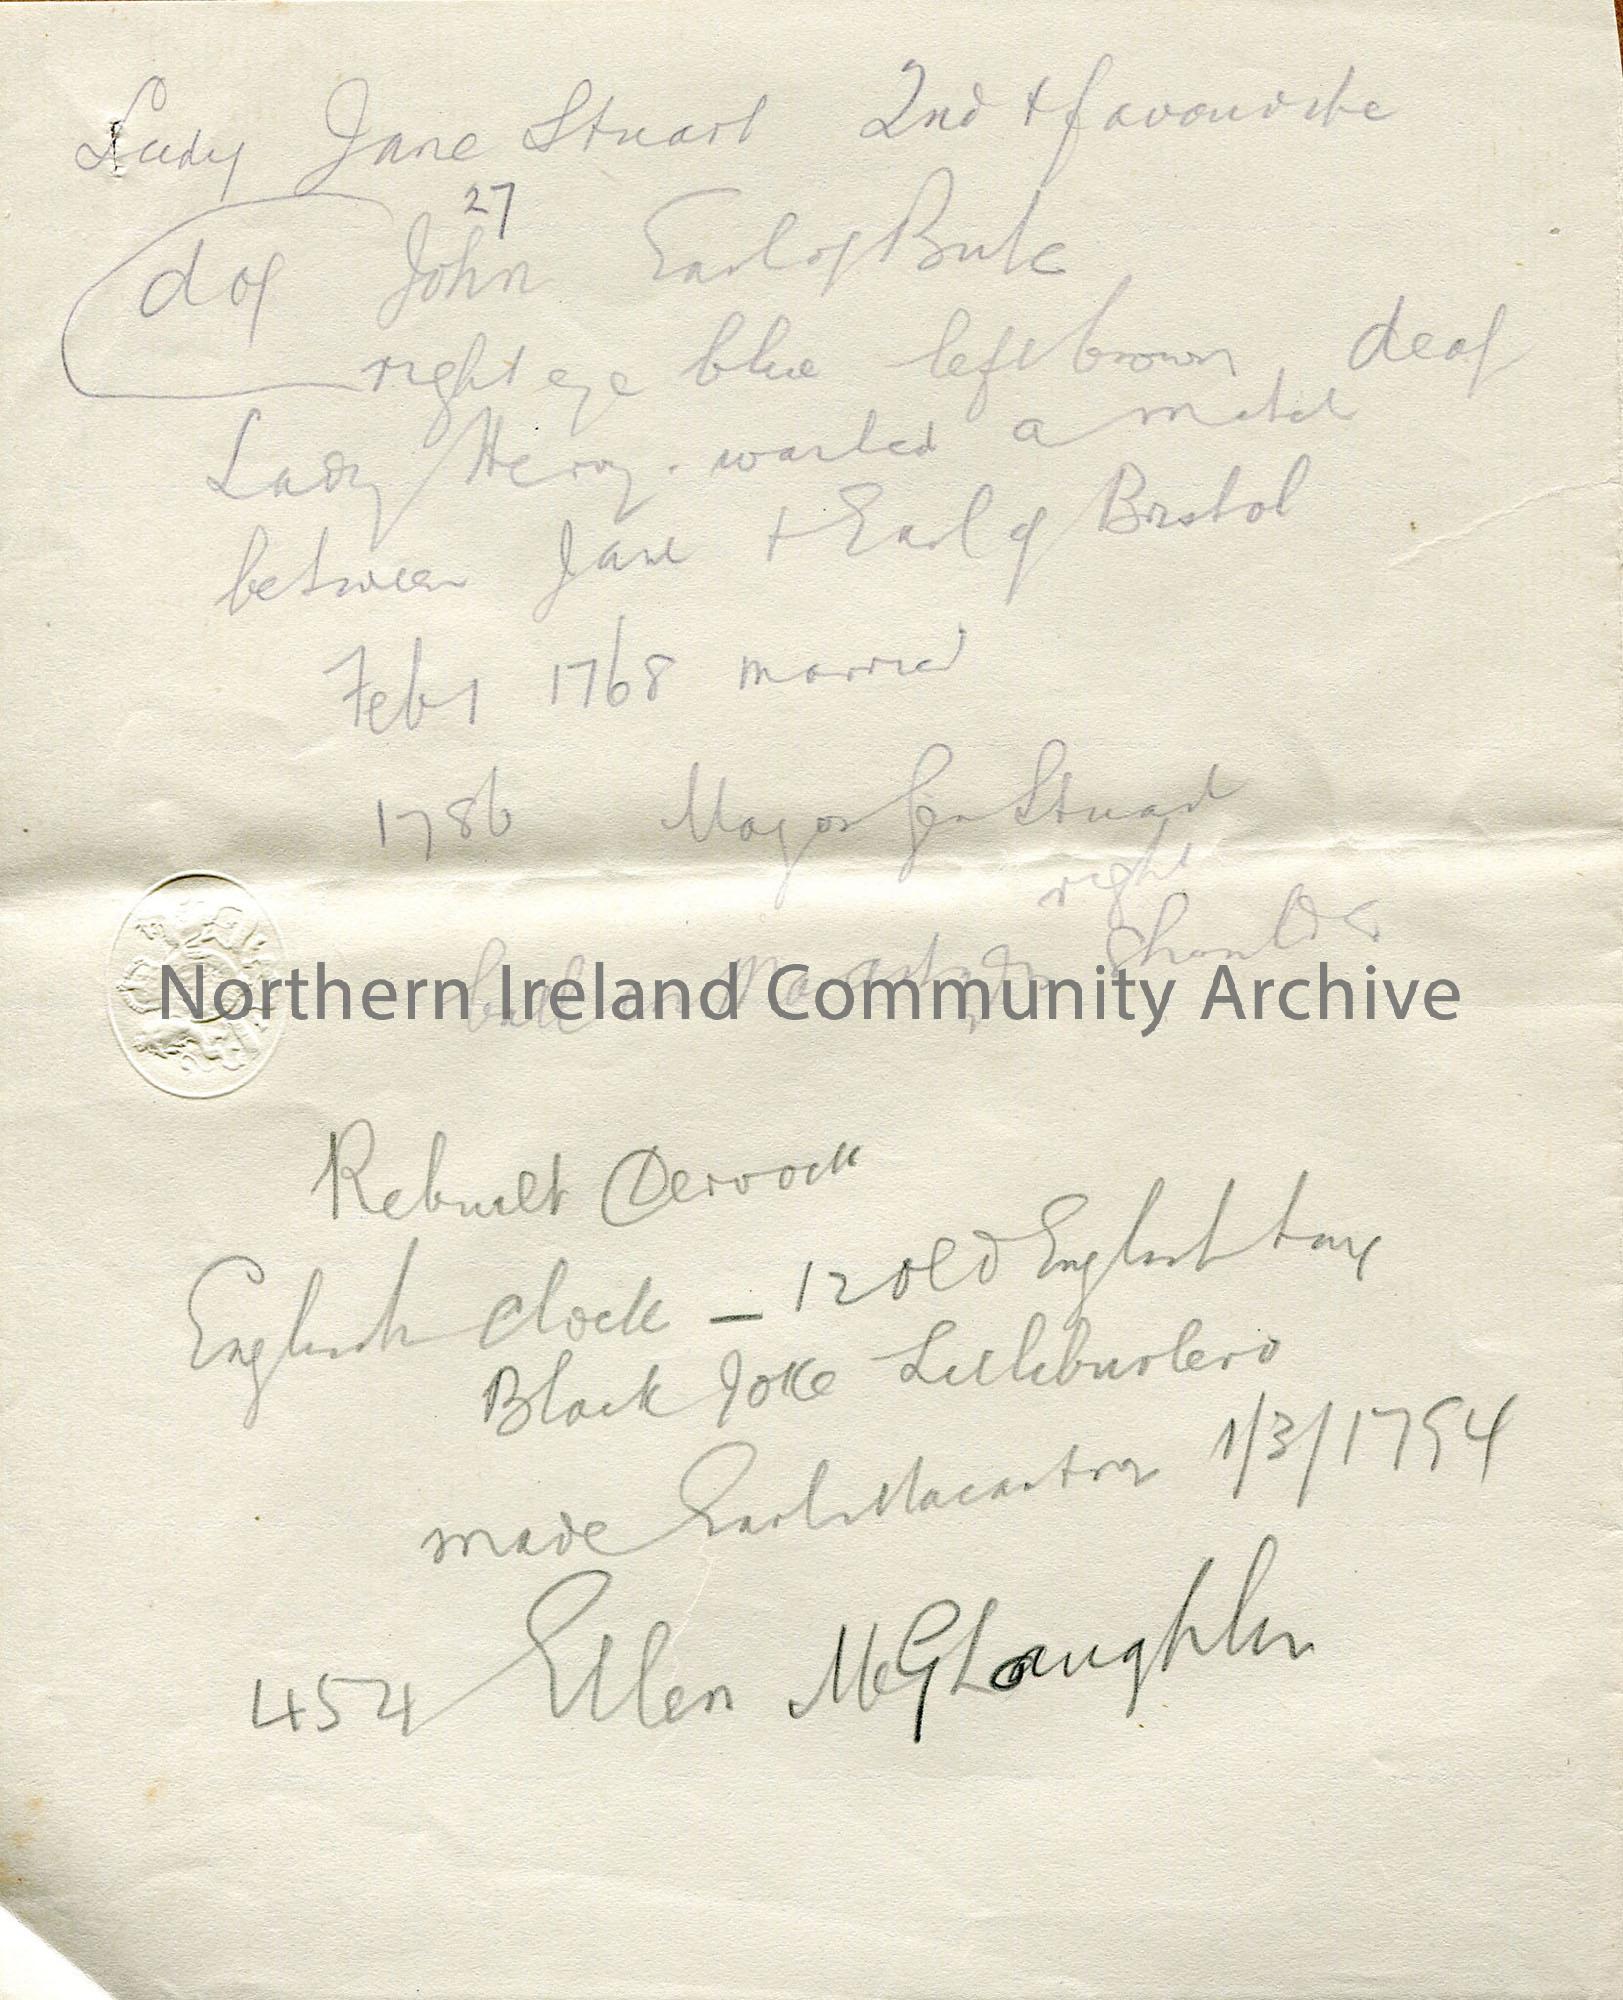 Lady Jane Stuart 2nd + favourite
27
d of John Earl of Bute
right eye blue left brown deaf
Lady Hervey. wanted a match
between Jane + Earl of Bristol
Feb 1 1768 married
1786 Major Gen Stuart
right
ball in shoulder
Northern Ireland Community Archive
Rebuilt Dervock
English Clock — 12 old English
Black Joke Lilliburlero
made Earl Macartney 1/3/1794
454 Ellen McGLoughlin